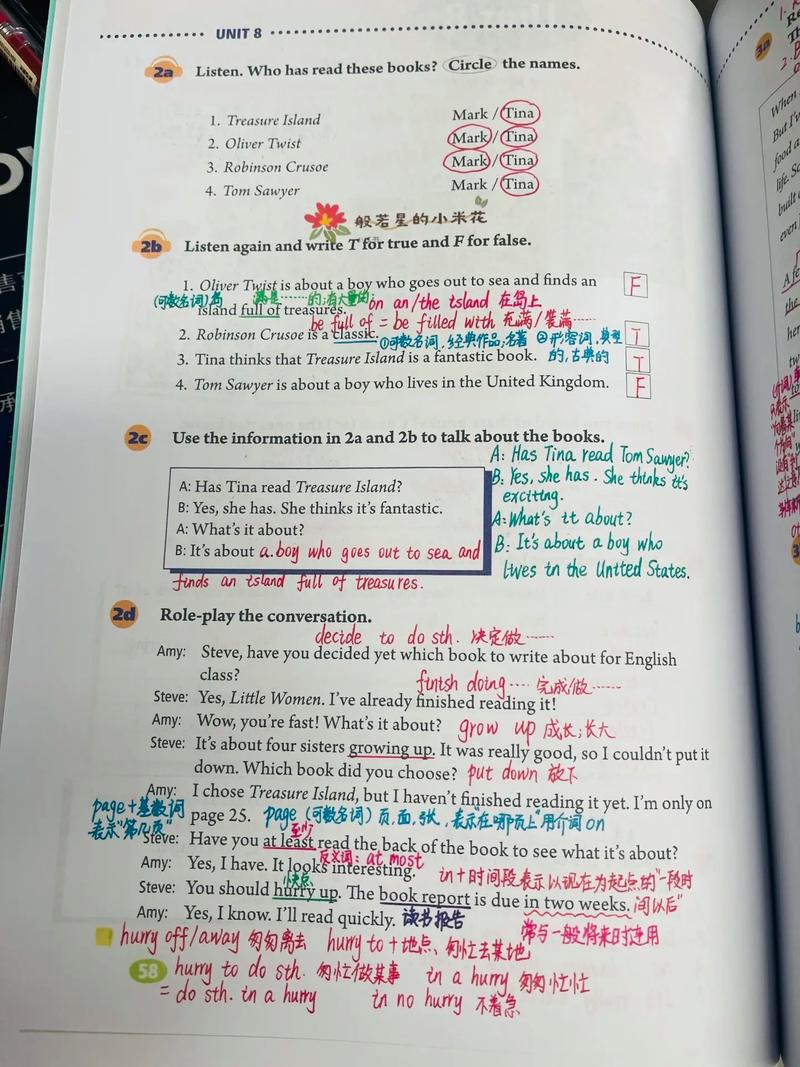 UNIT 8
2a Listen. Who has read these books? Circle the names.
1. Treasure Island Mark / Tina
2. Oliver Twist Mark / Tina
3. Robinson Crusoe Mark / Tina
4. Tom Sawyer Mark / Tina
般若星的小米花
2b Listen again and write T for true and F for false.
1. Oliver Twist is about a boy who goes out to sea and finds an F
(可数名词)岛 满是……的;有大量的;
island full of treasures. on an/the island 在岛上
be full of = be filled with 充满/装满……
2. Robinson Crusoe is a classic. T
①可数名词,经典作品;名著 ②形容词,典型
3. Tina thinks that Treasure Island is a fantastic book. 的,古典的 T
4. Tom Sawyer is about a boy who lives in the United Kingdom. F
2c Use the information in 2a and 2b to talk about the books.
A: Has Tina read Treasure Island?
B: Yes, she has. She thinks it's fantastic.
A: What's it about?
B: It's about a boy who goes out to sea and
finds an island full of treasures.
A: Has Tina read Tom Sawyer?
B: Yes, she has. She thinks it's
exciting.
A: What's it about?
B: It's about a boy who
lives in the United States.
2d Role-play the conversation.
decide to do sth. 决定做……
Amy: Steve, have you decided yet which book to write about for English
class?
finish doing…. 完成做……
Steve: Yes, Little Women. I've already finished reading it!
Amy: Wow, you're fast! What's it about? grow up 成长;长大
Steve: It's about four sisters growing up. It was really good, so I couldn't put it
down. Which book did you choose? put down 放下
Amy: I chose Treasure Island, but I haven't finished reading it yet. I'm only on
page 25. page (可数名词) 页,面,张,表示"在哪页上"用介词on
page+基数词
表示"第几页"
至少
Steve: Have you at least read the back of the book to see what it's about?
反义词: at most
Amy: Yes, I have. It looks interesting.
in+时间段表示以现在为起点的"一段时
间以后"
快点
Steve: You should hurry up. The book report is due in two weeks.
Amy: Yes, I know. I'll read quickly. 读书报告
常与一般将来时连用
hurry off/away 匆匆离去 hurry to+地点,匆忙去某地
58 hurry to do sth. 匆忙做某事 in a hurry 匆匆忙忙
= do sth. in a hurry in no hurry 不着急